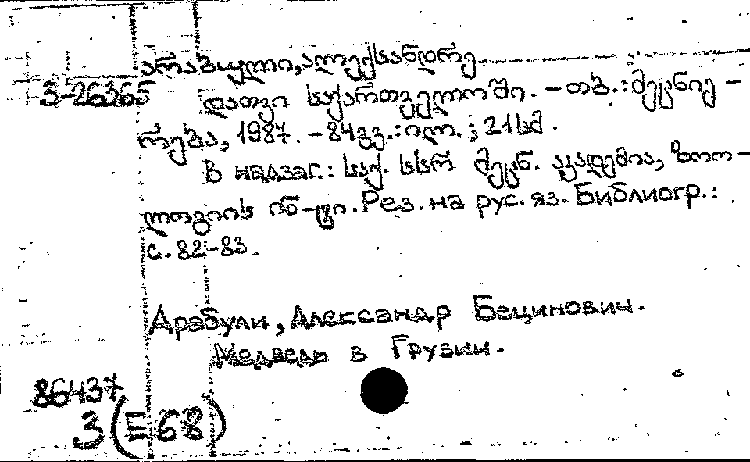 არაბული, ალექსანდრე
3-26365
დათვი საქართველოში. – თბ.: მეცნიე-
რება, 1987. – 84გვ.: ილ. ; 21სმ.
В надзаг.: საქ. სსრ მეცნ. აკადემია, ზოო-
ლოგიის ინ-ტი. Рез. на рус. яз. Библиогр.:
с. 82-83.
Арабули, Александр Бецинович.
Медведь в Грузии.
86437
3(E68)